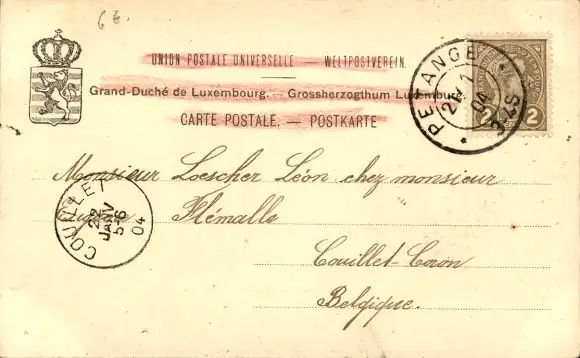 6 f.
UNION POSTALE UNIVERSELLE — WELTPOSTVEREIN.
Grand-Duché de Luxembourg. — Grossherzogthum Luxemburg
CARTE POSTALE. — POSTKARTE
PETANGE
21 1 04
3-4S
2 2
Monsieur Loescher Léon chez monsieur
Flémalle
Couillet-Coron
Belgique.
COUILLET
22 JANV 5-6 04